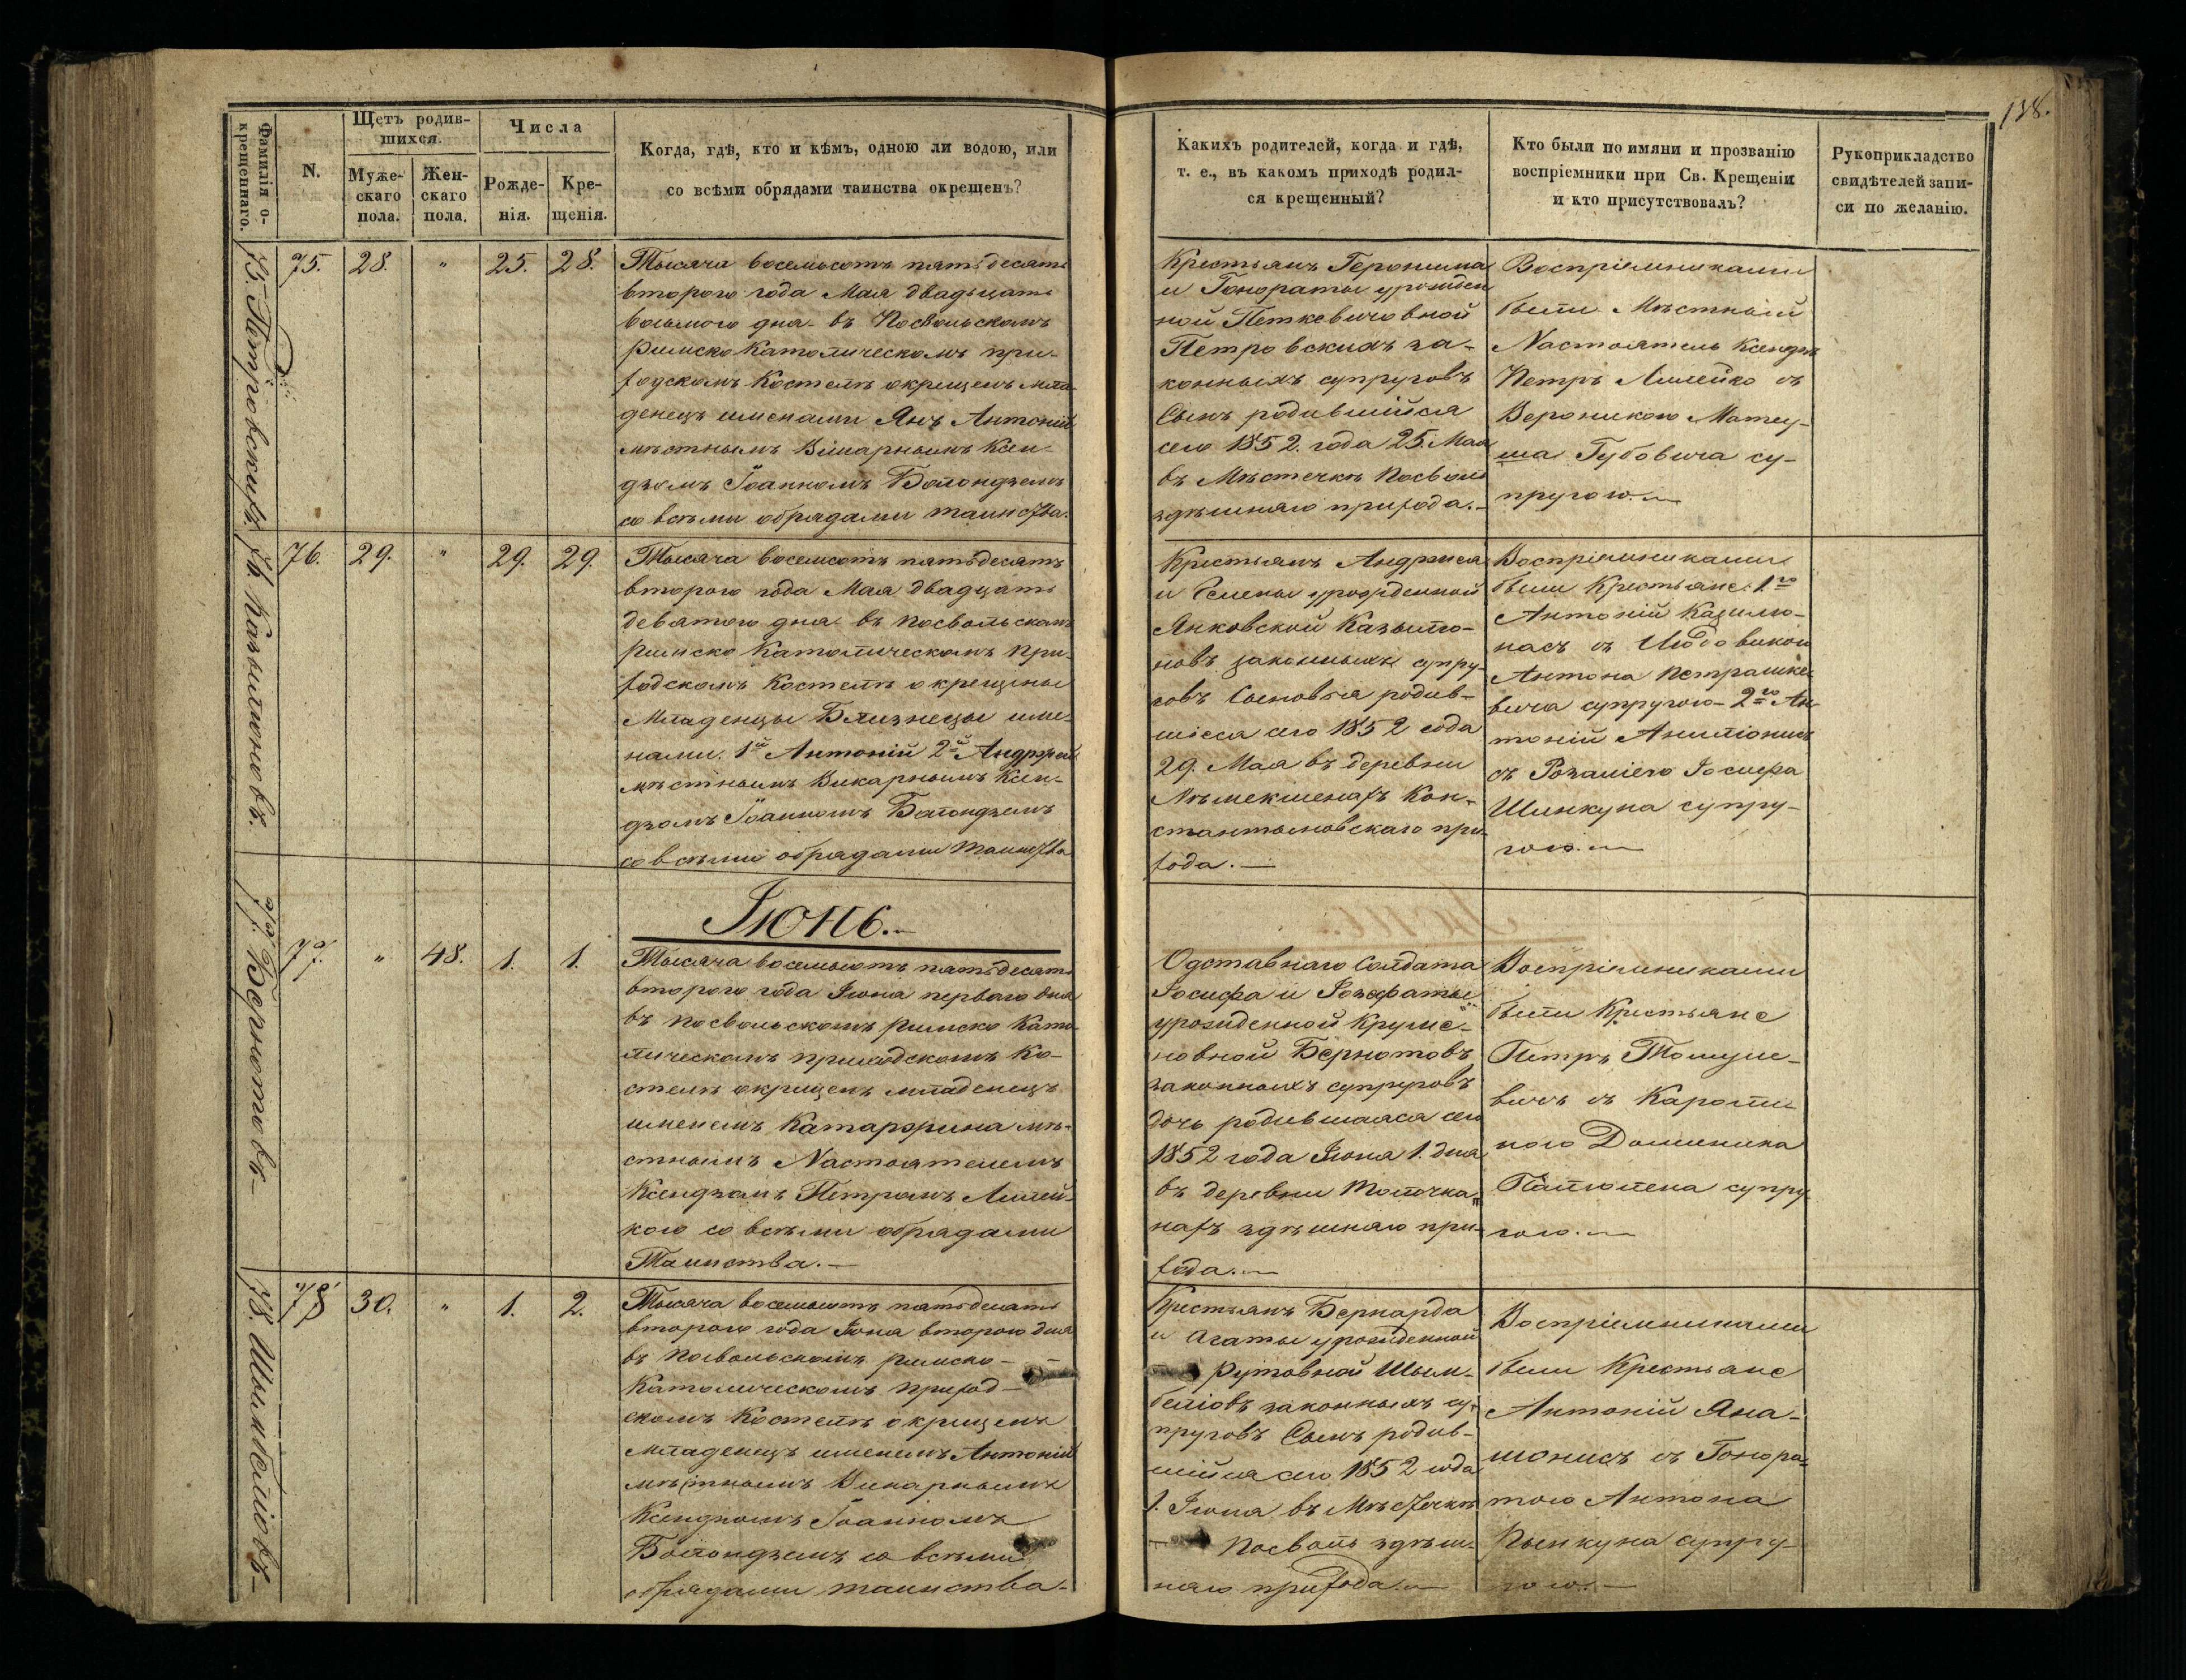 138.
Фамилія о-
крещеннаго.
N.
Щетъ родив-
шихся.
Муже-
скаго
пола.
Жен-
скаго
пола.
Числа
Рожде-
нія.
Кре-
щенія.
Когда, гдѣ, кто и кѣмъ, одною ли водою, или
со всѣми обрядами таинства окрещенъ?
Каких​ъ родителей, когда и гдѣ,
т. е., въ какомъ приходѣ родил-
ся крещенный?
Кто были по имяни и прозванію
воспріемники при Св. Крещеніи
и кто присутствовалъ?
Рукоприкладство
свидѣтелей запи-
си по желанію.
75. Петровскихъ
75.
28.
"
25.
28.
Тысяча восемьсотъ пятьдесятъ
второго года Мая двадцать
восьмого дна въ Посвольскомъ
Римско Католическомъ при-
ходскомъ Костелѣ окрещенъ мла-
денецъ именами Янъ Антоній
мѣстнымъ Викарнымъ Ксен-
дзомъ Іоанномъ Болондземъ
со всѣми обрядами таинства.
Крестьянъ Геронима
и Гонораты урожден
ной Петкевичовной
Петровскихъ за-
конныхъ супруговъ
Сынъ родившійся
сего 1852. года 25. Мая
въ Мѣстечкѣ Посволѣ
здѣшняго прихода.-
Воспріемниками
были Мѣстный
Настоятель Ксендзъ
Петръ Лилейко съ
Вероникою Матеу-
ша Губовича су-
пругою.
76. Казылюновъ.
76.
29.
"
29.
29.
Тысяча восемсотъ пятьдесятъ
второго года Мая двадцать
девятого дна въ Посвольскомъ
Римско Католическомъ при-
ходскомъ Костелѣ окрещены
Младенцы Близнецы име-
нами. 1й Антоній 2й Андржей
мѣстнымъ Викарнымъ Ксен-
дзомъ Іоанномъ Болондземъ
со всѣми обрядами таинства
Крестьянъ Андржея
и Елены урожденной
Янковской Казылю-
новъ законныхъ супру-
говъ Сыновья родив-
шіеся сего 1852 года
29. Мая въ деревни
Кон-
стантыновскаго при-
хода.
Воспріемниками
были Крестьяне 1го
Антоній Казилю-
насъ съ Людовикою
Антона Петрашке-
вича супругою- 2го Ан-
тоній
съ Розаліею Іосифа
Шинкуна супру-
гою.
Іюнь.
77. Бернотовъ
77.
"
48.
1.
1.
Тысяча восемьсотъ пятьдесятъ
второго года Іюна перваго дна
въ Посвольскомъ Римско Като-
лическомъ приходскомъ Ко-
стелѣ окрещенъ младенецъ
именемъ Катаржина мѣ-
стнымъ Настоятелемъ
Ксендзомъ Петромъ Лилей-
кою со всѣми обрядами
Таинства.
Одставнаго Солдата
Іосифа и Іозефаты
урожденной
Бернотовъ
законныхъ супруговъ
дочь родившаяся сего
1852 года Іюна 1. дна
въ деревни Толочка-
нахъ здѣшняго при-
хода.
Воспріемниками
были Крестьяне
Петръ Томуле-
вичъ съ Кароли-
ною Доминика
супру
гою.
78. Шымбеліовъ
78
30.
"
1.
2.
Тысяча восемьсотъ пятьдесятъ
второго года Іюна второго дня
въ Посвольскомъ Римско-
Католическомъ приход-
скомъ Костелѣ окрещенъ
младенецъ именемъ Антоній
мѣстнымъ Викарнымъ
Ксендзомъ Іоанномъ
Болондземъ со всѣми
обрядами таинства.
Крестьянъ Бернарда
и Агаты урожденной
Рутовной Шым-
беліовъ законныхъ су-
пруговъ Сынъ родив-
шійся сего 1852 года
1. Іюна въ Мѣстечкѣ
Посволѣ здѣш-
няго прихода.
Воспріемниками
были Крестьяне
Антоній Яна-
шонисъ съ Гонора-
тою Антона
супру-
гою.